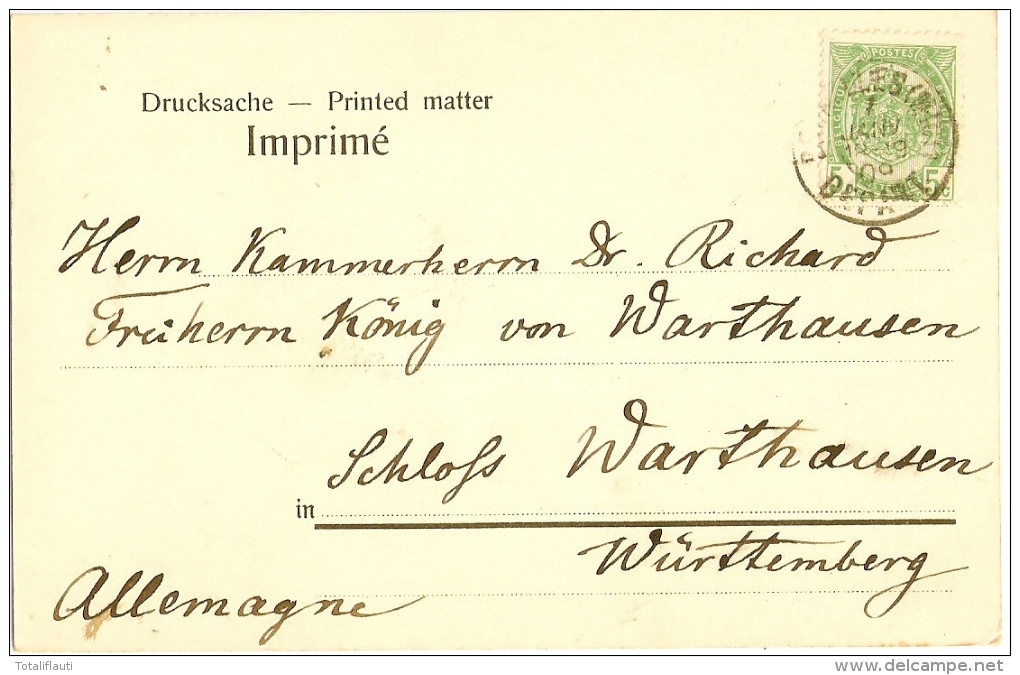 Drucksache — Printed matter
Imprimé
POSTES
BELGIQUE
5 5
JANV
09
DEPART
Herrn Kammerherrn Dr. Richard
Freiherrn König von Warthausen
Schloß Warthausen
in
Württemberg
Allemagne
Totaliflauti
www.delcampe.net